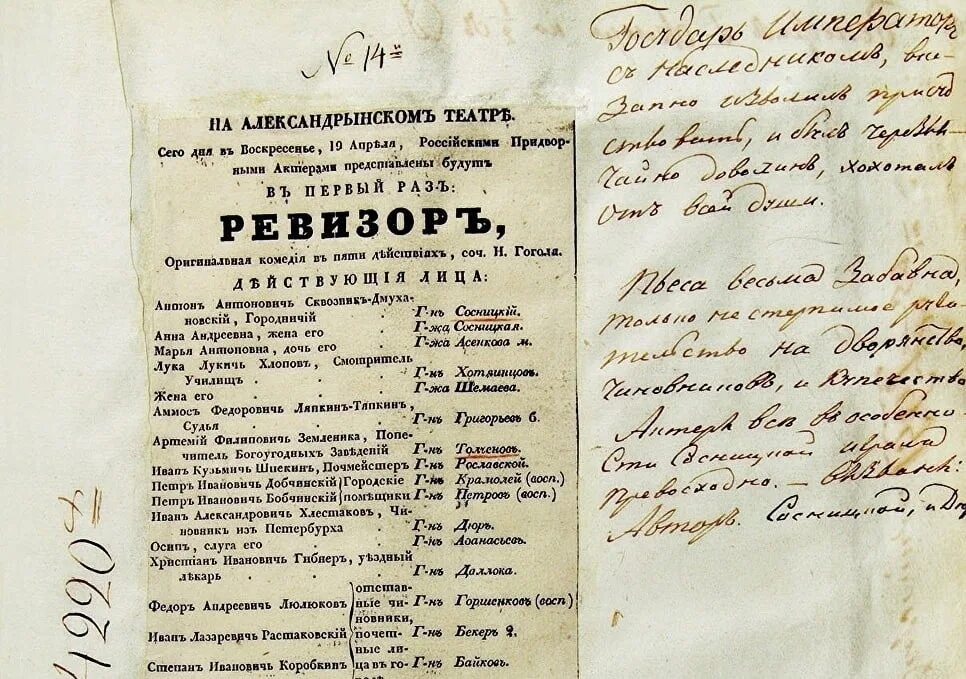 № 14й
НА АЛЕКСАНДРЫНСКОМЪ ТЕАТРѢ.
Сего дня въ Воскресенье, 19 Апрѣля, Россійскими Придвор-
ными Актерами представлены будутъ
ВЪ ПЕРВЫЙ РАЗЪ:
РЕВИЗОРЪ,
Оригинальная комедія въ пяти дѣйствіяхъ, соч. Н. Гоголя.
ДѢЙСТВУЮЩІЯ ЛИЦА:
Антонъ Антоновичь Сквозник-Дмуха-
новскій, Городничій . Г-нъ Сосницкій.
Анна Андреевна, жена его . Г-жа Сосницкая.
Марья Антоновна, дочь его . Г-жа Асенкова м.
Лука Лукичь Хлоповъ, Смотритель
Училищъ . . . Г-нъ Хотяинцовъ.
Жена его . . . Г-жа Шемаева.
Аммосъ Федоровичь Ляпкинъ-Тяпкинъ,
Судья . . . Г-нъ Григорьевъ б.
Артемій Филиповичь Земленика, Попе-
читель Богоугодныхъ Заведеній Г-нъ Толченовъ.
Иванъ Кузьмичь Шпекинъ, Почмейстеръ Г-нъ Рославской.
Петръ Ивановичь Добчинскій) Городскіе Г-нъ Крамолей (восп.)
Петръ Ивановичь Бобчинскій) помѣщики Г-нъ Петровъ (восп.)
Иванъ Александровичь Хлестаковъ, Чи-
новникъ изъ Петербурха . Г-нъ Дюръ.
Осипъ, слуга его . . Г-нъ Аѳанасьевъ.
Христіанъ Ивановичь Гибнеръ, уѣздный
лѣкарь . . . Г-нъ Даллока.
Федоръ Андреевичь Люлюковъ отстав-ные чи-новники, Г-нъ Горшенковъ (восп)
Иванъ Лазаревичь Растаковскій почет-ные ли- Г-нъ Бекеръ 2.
Степанъ Ивановичь Коробкинъ ца въ го- Г-нъ Байковъ.
Государь Императоръ
съ Наслѣдникомъ, вне-
запно изволилъ присут
ствовать, и былъ чрезвы-
чайно доволенъ, хохоталъ
отъ всей души.
Пьеса весьма забавна,
только не стерпимое руга
тельство на дворянство,
чиновниковъ, и купечество
Актеры всѣ въ особенно
сти Сосницкой играли
превосходно. — вызваны:
Авторъ. Сосницкой, и Дюр
4220